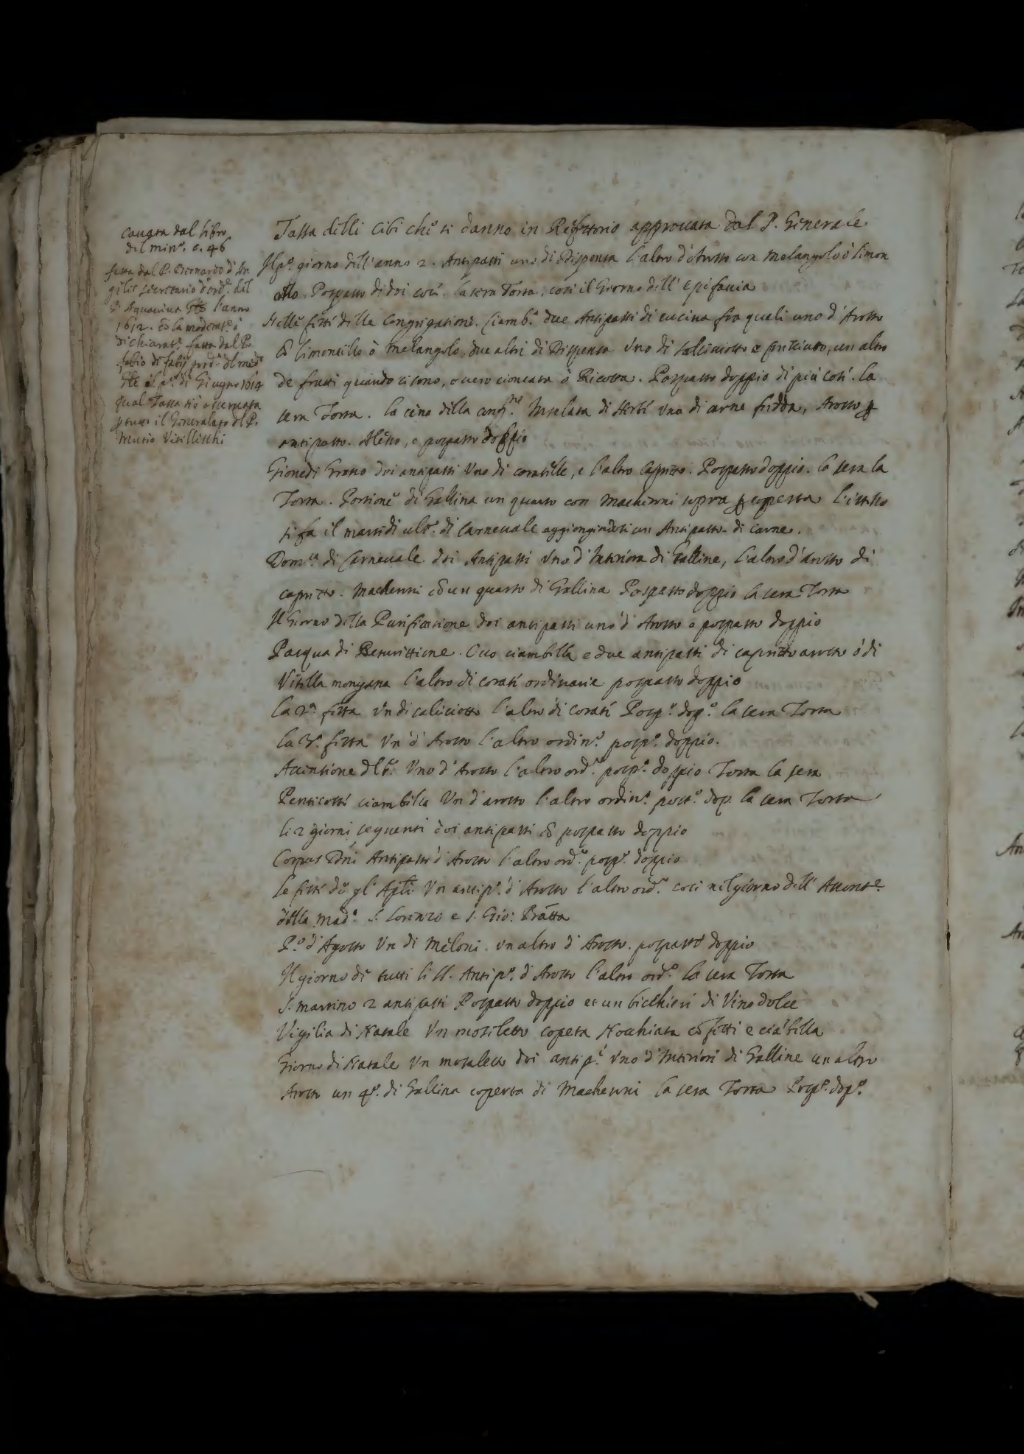 Cauata dal libro
del min.º c. 46
fatta dal P. Bernardo d'An
gelis secretario d'ord.e del
P. Aquauiua Gñle l'anno
1612. Et la moderat.e ò
dichiarat.e fatta dal P.
Fabio de Fabijs
Gñle al p.º di Giugno 1614
qual Tassa si è osseruata
tutto il Generalato del P.
Mutio Vitelleschi
Tassa delli Cibi che si danno in Refettorio approuata dal P. Generale
Il p.º giorno dell'anno 2. Antipasti uno di Dispensa l'altro d'Arosto con Melangolo ò limon
cello. Pospasto di doi cose la sera Torta. così il Giorno dell'Epifania
Nelle feste della Congregatione. Ciamb.e due Antipasti di cucina fra quali uno d'Arosto
et limoncello ò melangolo, due altri di Dispensa uno di salciciotto o presciutto, un altro
de frutti quando ci sono, o uero gioncata ò Ricotta. Pospasto doppio di più cose. la
sera Torta. la cena della Insalata di Herbe una di carne fredda, Arosto p
antipasto. Alesso, e pospasto doppio
Giouedi Grasso doi antipasti Uno di coratelle, e l'altro Capretto. Pospasto doppio. la sera la
Torta. Portione di Gallina un quarto con Macheroni sopra p coperta l'istesso
si fa il martedi ult.º di Carneuale aggiongendosi un Antipasto di carne.
Dom.ca di Carneuale doi Antipasti Uno d'Interiora di Galline, l'altro d'arosto di
capretto. Macheroni et un quarto di Gallina Pospasto doppio la sera Torta
Il Giorno della Purificatione doi antipasti uno d'Arosto e pospasto doppio
Pasqua di Resurettione. Ouo ciambella e due antipasti di capretto arosto ò di
Vitella mongana l'altro di corate ordinarie pospasto doppio
la 2.a festa Un di salciciotto l'altro di corate Posp.º dop.º la sera Torta
la 3.a festa Un d'Arosto l'altro ordin.º posp.º doppio.
Ascensione Uno d'Arosto l'altro ord.º posp.º doppio Torta la sera
Pentecoste ciambella Un d'arosto l'altro ordin.º post.º dop. la sera Torta
li 2 giorni seguenti doi antipasti et pospasto doppio
Corpus Dñi Antipasto d'Arosto l'altro ord.º posp.º doppio
Le feste de gl'Apli Un antip.º d'Arosto l'altro ord.º così nel giorno dell'Assont.e
della Mad.a S. Lorenzo e S. Gio: Batta
P.º d'Agosto Un di Meloni. un altro d'Arosto. pospasto doppio
Il giorno de tutti li SS. Antip.º d'Arosto l'altro ord.º la sera Torta
S. Martino 2 antipasti Pospasto doppio et un bicchieri di Vino dolce
Vigilia di Natale Un mostaccio coperta Nocchiata cõfetti e ciãbella
Giorno di Natale Un doi antip.i Uno d'Interiori di Galline un altro
Arosto un q.º di Gallina coperta di Macheroni la sera Torta Posp.º dop.º